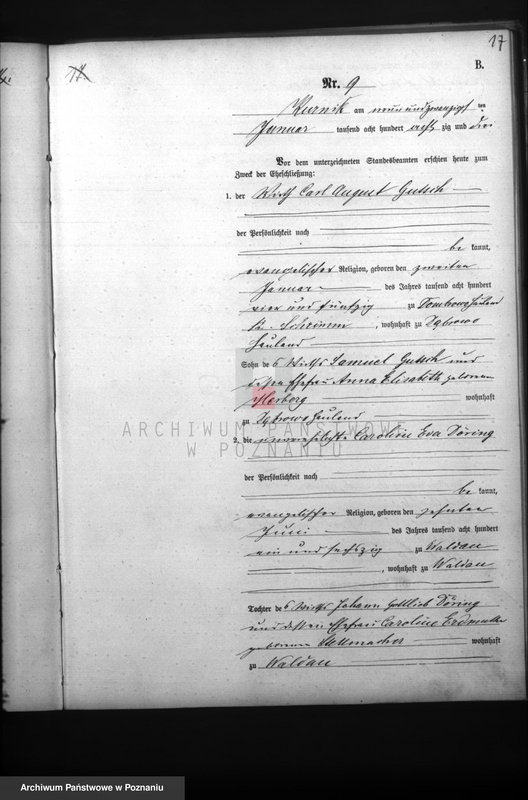 17
17
B.
Nr. 9
Kurnik am neun und zwanzigsten
Januar tausend acht hundert achtzig und drei
Vor dem unterzeichneten Standesbeamten erschien heute zum
Zweck der Eheschließung:
1. der Wirth Carl August Gutsch
der Persönlichkeit nach
bekannt,
evangelischer Religion, geboren den zweiten
Januar des Jahres tausend acht hundert
vier und fünfzig zu Dombrowo Hauland
Kr. Schrimm, wohnhaft zu Dębrowo
Hauland
Sohn des Wirths Samuel Gutsch und
dessen Ehefrau Anna Elisabeth geborenen
wohnhaft
zu Hauland
2. die unverehelichte Caroline Eva Döring
der Persönlichkeit nach
bekannt,
evangelischer Religion, geboren den zehnten
Juni des Jahres tausend acht hundert
ein und sechszig zu Waldau
, wohnhaft zu Waldau
Tochter des Wirths Johann Gottlieb Döring
und dessen Ehefrau Caroline Erdmuthe
geborenen Stellmacher wohnhaft
zu Waldau
ARCHIWUM PAŃSTWOWE
W POZNANIU
Archiwum Państwowe w Poznaniu
Archiwum Państwowe w Poznaniu